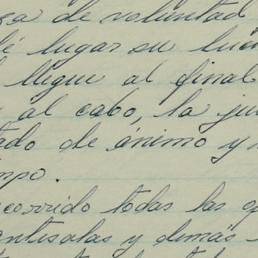 za de voluntad
lugar su luci
llegue al final
al cabo, la ju
tado de ánimo y
mpo.
corrido todas las
antesalas y demás